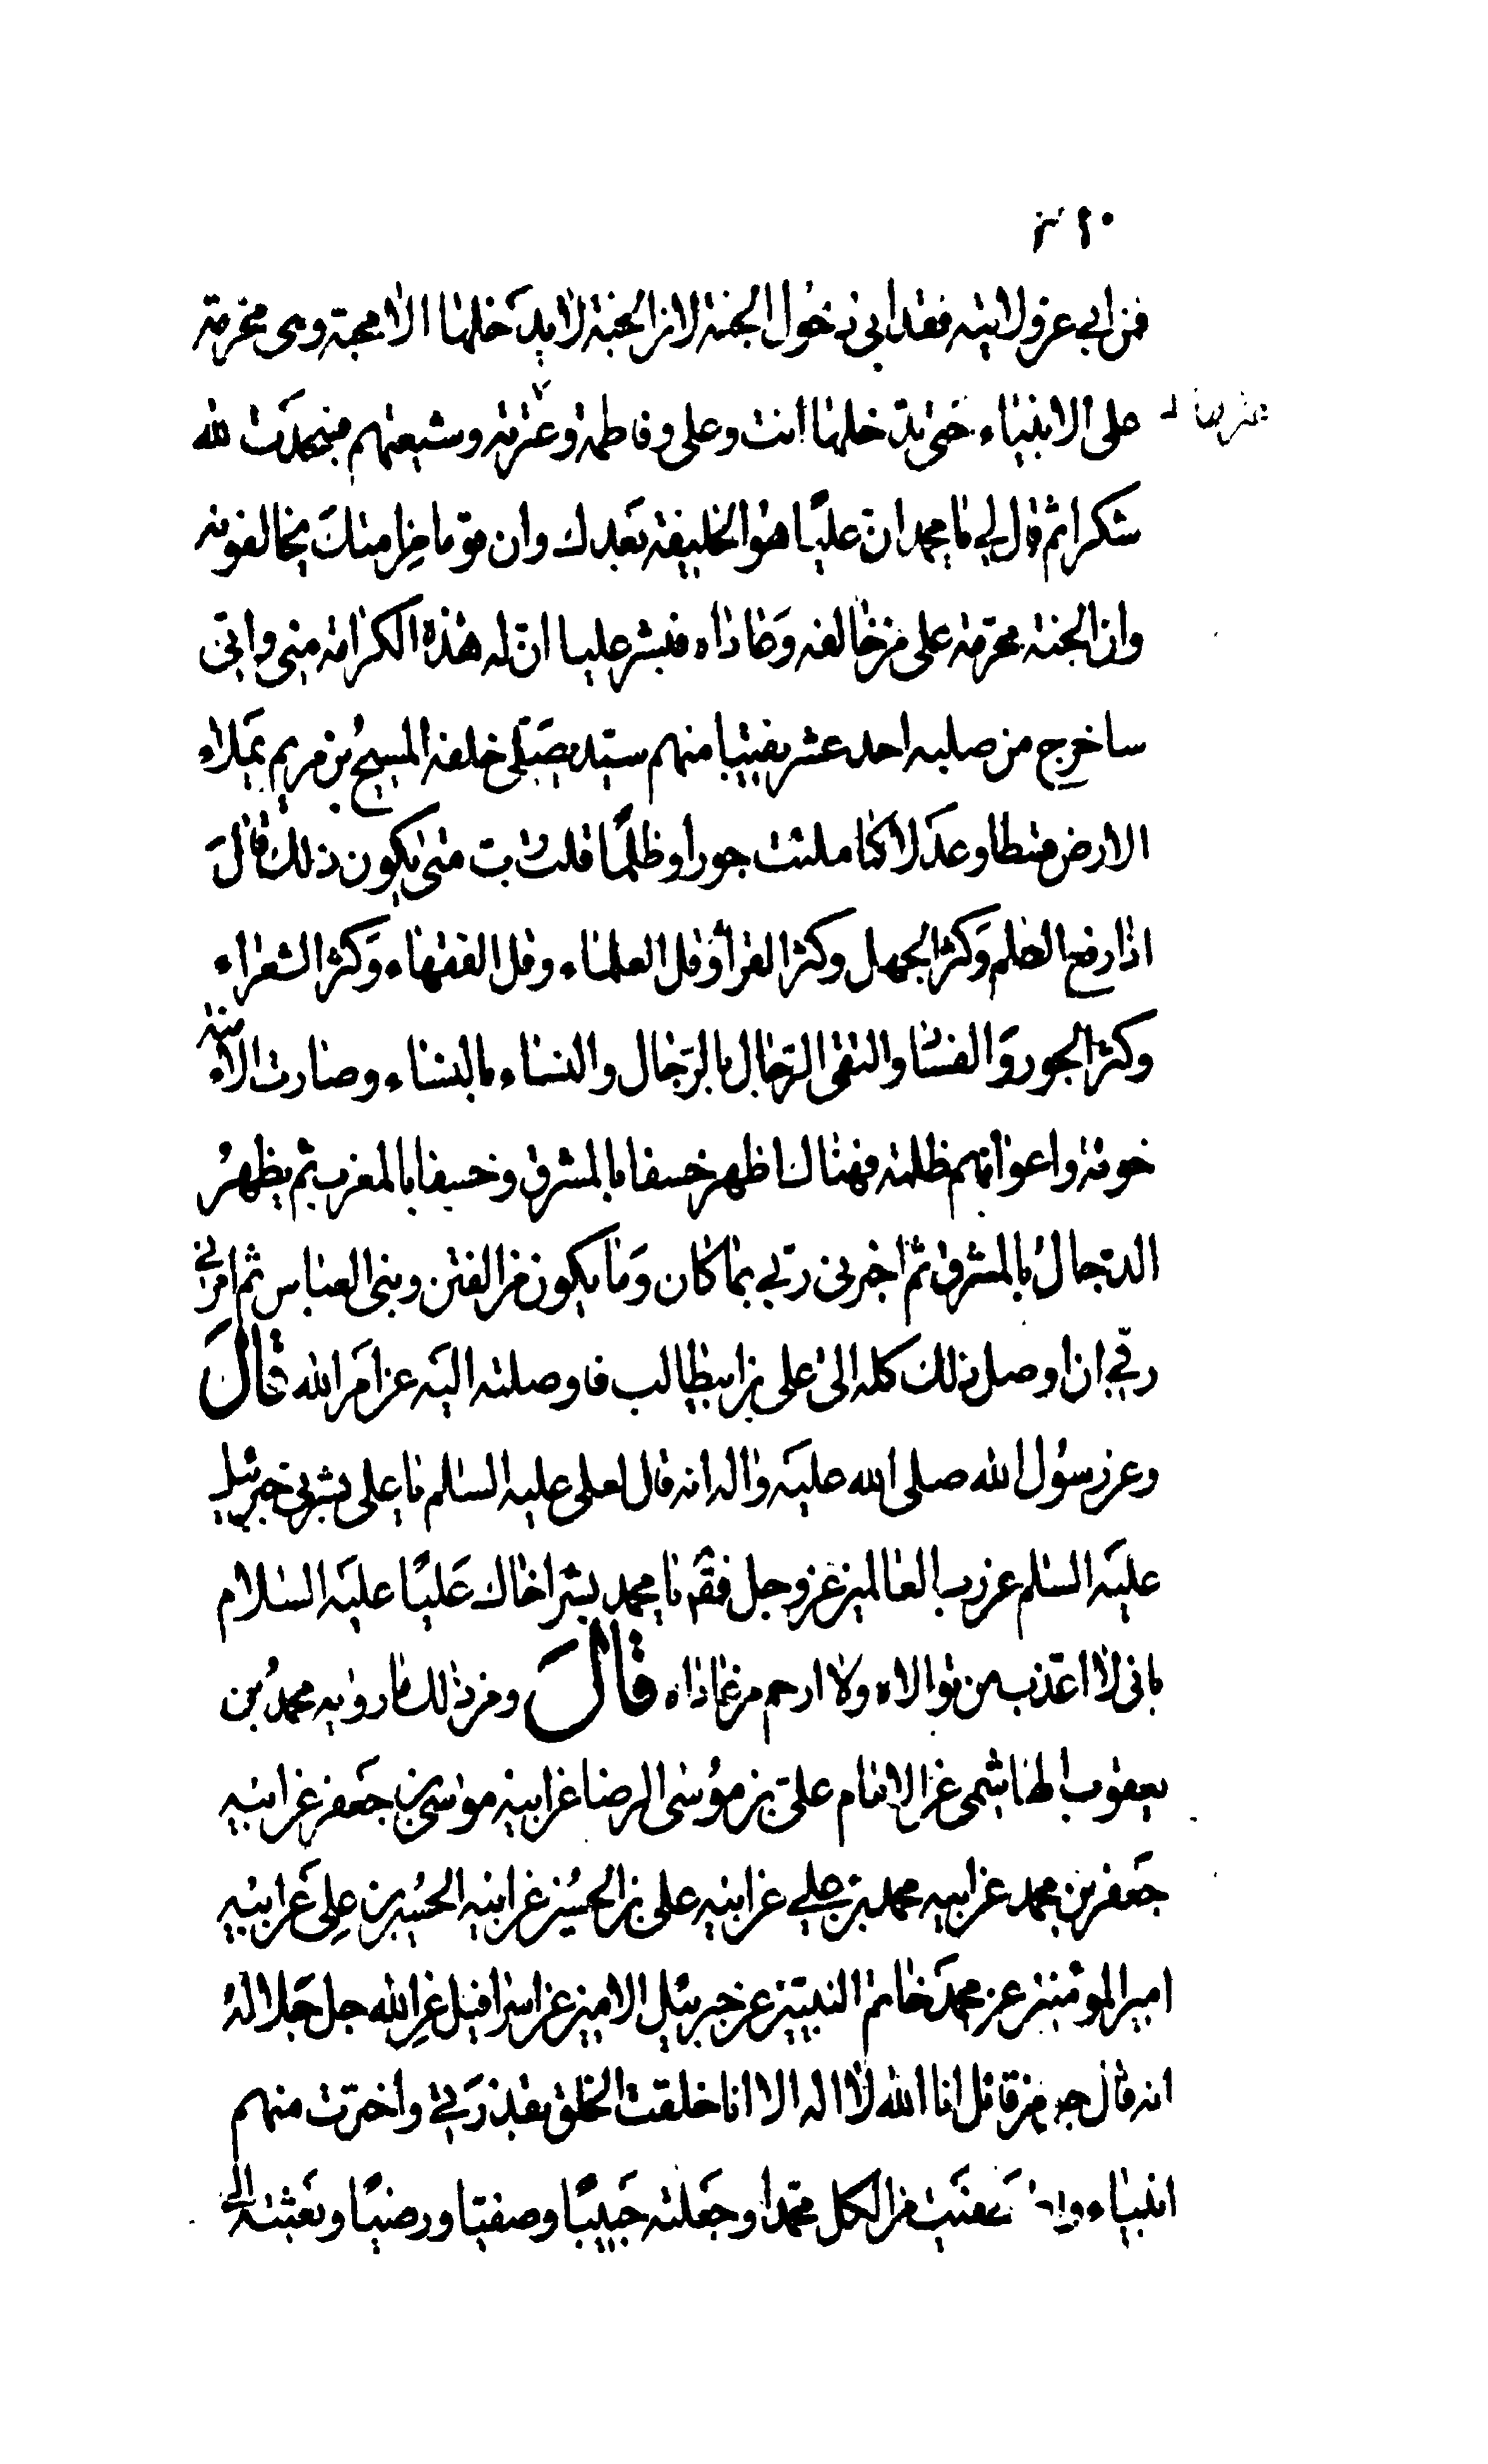 فمن ابى عن ولايته فقد ابى دخول الجنة لان الجنة لا يدخلها الا محبه وهى محرمة
على الانبياء حتى تدخلها انت وعلى وفاطمة وعترته وشيعتهم فسجدت لله
شكرا ثم قال لى يا محمد ان عليّا هو الخليفة بعدك وان قوما من امتك يخالفونه
وان الجنة محرّمة على من خالفه وعاداه فبشر عليا ان له هذه الكرامة منى وانى
ساخرج من صلبه احد عشر نقيبا منهم سيّد يصلّى خلفه المسيح بن مريم يملاء
الارض قسطا وعدلا كما ملئت جورا وظلمًا قلت رب متى يكون ذلك قال
اذا رفع العلم وكثر الجهل وكثر القرّاء وقل العلماء وقل الفقهاء وكثر الشعراء
وكثر الجور والفساد والتقى الرّجال بالرّجال والنساء بالنساء وصارت الامنة
خونة واعوانهم ظلمة فهناك اظهر خسفا بالمشرق وخسفا بالمغرب ثم يظهر
الدجال بالمشرق ثم اخبرنى ربّى بما كان وما يكون من الفتن وبنى العباس ثم امرنى
ربّى ان اوصل ذلك كله الى على بن ابيطالب فاوصلته اليه عن امر الله قال
وعن رسول الله صلى الله عليه واله انه قال لعلى عليه السلم يا على بشرنى جبرئيل
عليه السلم عن رب العالمين عز وجل فقم يا محمد بشر اخاك عليًا عليه السلام
بانى لا اعذب من توالاه ولا ارحم من عاداه قال ومن ذلك ما رواه محمد بن
يعقوب الهاشمى عن الامام على بن موسى الرضا عن ابيه موسى بن جعفر عن ابيه
جعفر بن محمد عن ابيه محمد بن على عن ابيه على بن الحسين عن ابيه الحسين بن على عن ابيه
امير المؤمنين عن محمد خاتم النبيين عن جبرئيل الامين عن اسرافيل عن الله جل جلاله
انه قال جل من قائل انا الله لا اله الا انا خلقت الخلق بقدرتى واخترت منهم
انبياء واصطفيت من الكل محمّدا وجعلته حبيبًا وصفيّا ورضيّا وبعثته الى